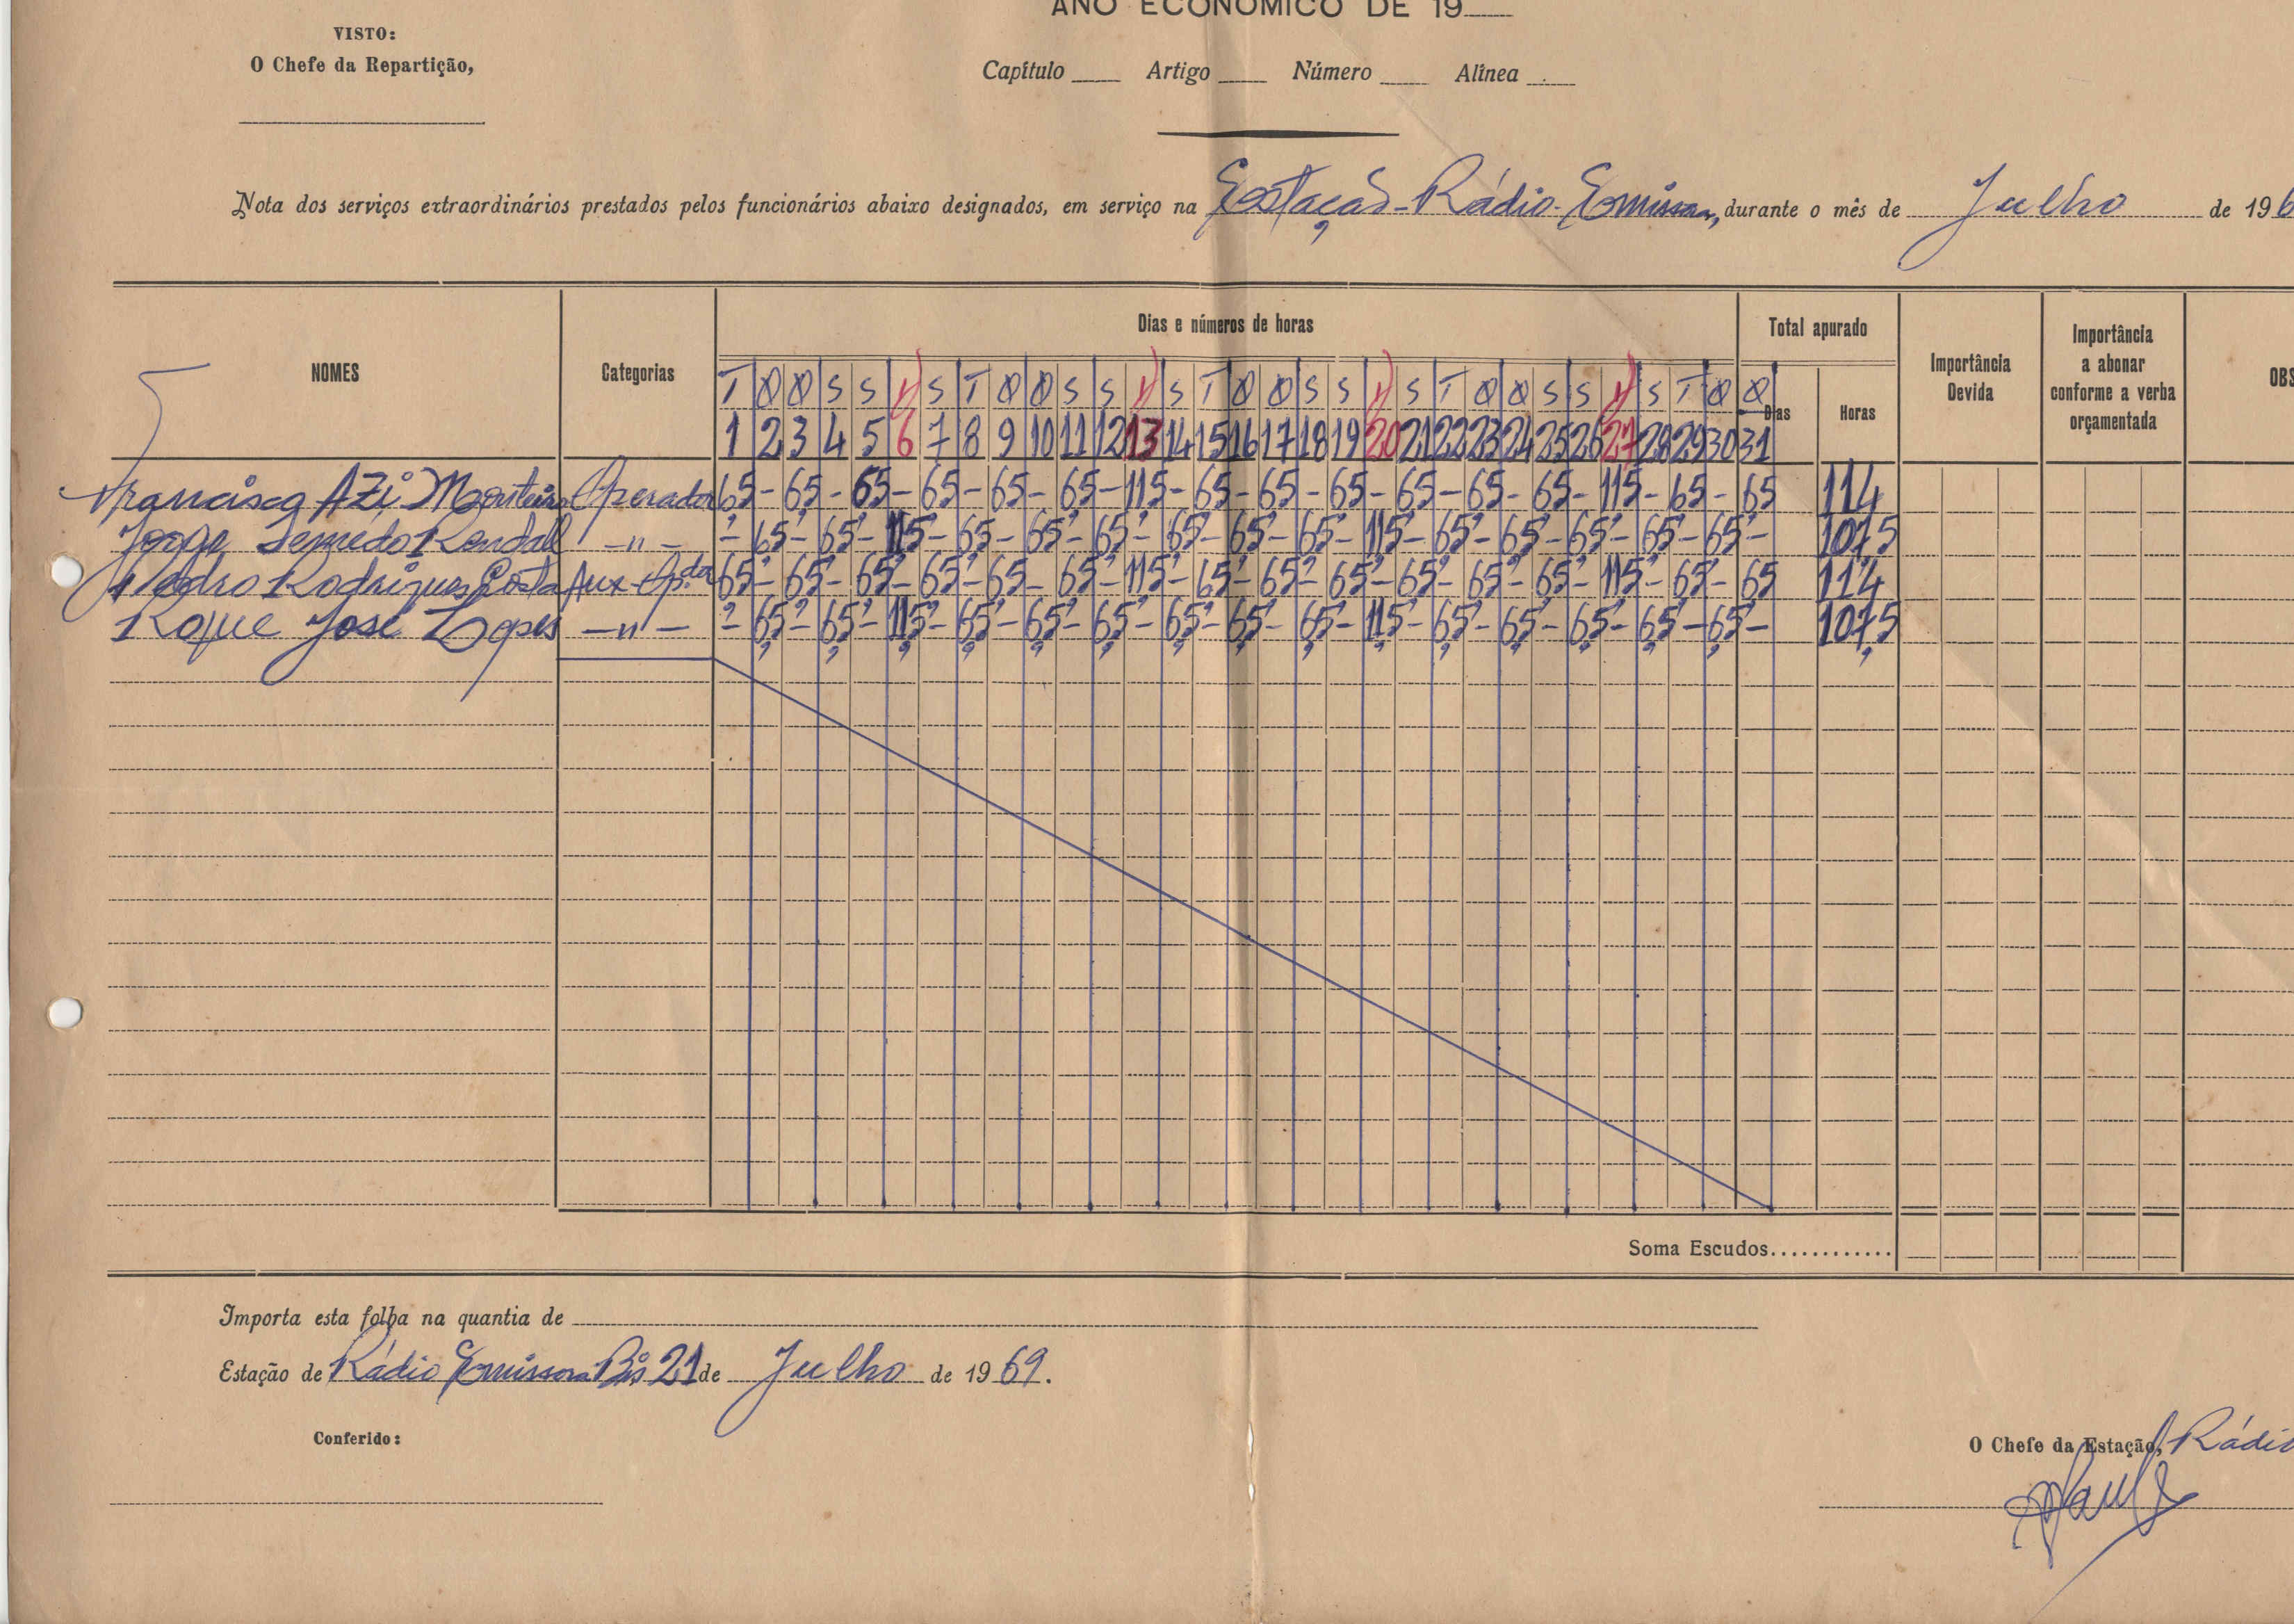 ANO ECONÓMICO DE 19
VISTO:
O Chefe da Repartição,
Capítulo Artigo Número Alínea
Nota dos serviços extraordinários prestados pelos funcionários abaixo designados, em serviço na Estação-Rádio-Emissora, durante o mês de Julho de 196
NOMES Categorias Dias e números de horas Total apurado Importância Devida Importância a abonar conforme a verba orçamentada OBS
T Q Q S S D S T Q Q S S D S T Q Q S S D S T Q Q S S D S T Q Q Dias Horas
1 2 3 4 5 6 7 8 9 10 11 12 13 14 15 16 17 18 19 20 21 22 23 24 25 26 27 28 29 30 31
Francisco Azi Monteiro Operador 6,5 - 6,5 - 6,5 - 6,5 - 6,5 - 6,5 - 11,5 - 6,5 - 6,5 - 6,5 - 6,5 - 6,5 - 6,5 - 11,5 - 6,5 - 6,5 114
Jorge Semedo Rendall -"- - 6,5 - 6,5 - 11,5 - 6,5 - 6,5 - 6,5 - 6,5 - 6,5 - 6,5 - 11,5 - 6,5 - 6,5 - 6,5 - 6,5 - 6,5 - 107,5
Pedro Rodrigues Costa Aux-Op.dor 6,5 - 6,5 - 6,5 - 6,5 - 6,5 - 6,5 - 11,5 - 6,5 - 6,5 - 6,5 - 6,5 - 6,5 - 6,5 - 11,5 - 6,5 - 6,5 114
Roque José Lopes -"- - 6,5 - 6,5 - 11,5 - 6,5 - 6,5 - 6,5 - 6,5 - 6,5 - 6,5 - 11,5 - 6,5 - 6,5 - 6,5 - 6,5 - 6,5 - 107,5
Soma Escudos............
Importa esta folha na quantia de
Estação de Rádio Emissora 21 de Julho de 1969.
Conferido:
O Chefe da Estação, Rádio